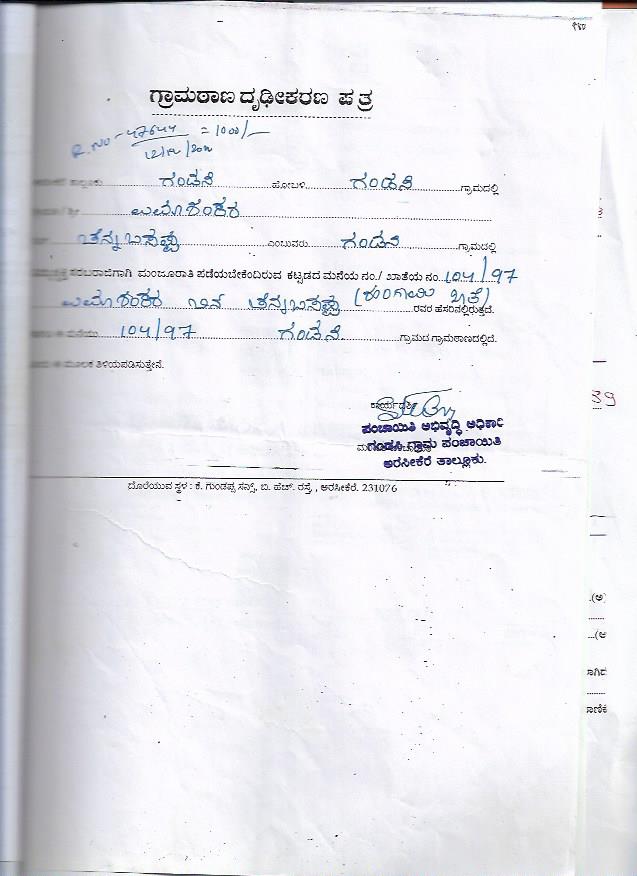 ೯೬೦
ಗ್ರಾಮಠಾಣ ದೃಢೀಕರಣ ಪತ್ರ
R. No - 47644 = 1000/-
ತಾಲ್ಲೂಕು ಗಂಡಸಿ ಹೋಬಳಿ ಗಂಡಸಿ ಗ್ರಾಮದಲ್ಲಿ
ಉಮಾಶಂಕರ
ಚನ್ನಬಸಪ್ಪ ಎಂಬುವರು ಗಂಡಸಿ ಗ್ರಾಮದಲ್ಲಿ
ಸರಬರಾಜಿಗಾಗಿ ಮಂಜೂರಾತಿ ಪಡೆಯಬೇಕೆಂದಿರುವ ಕಟ್ಟಡದ ಮನೆಯ ನಂ./ ಖಾತೆಯ ನಂ. 104/97
ಉಮಾಶಂಕರ ಬಿನ್ ಚನ್ನಬಸಪ್ಪ ರವರ ಹೆಸರಿನಲ್ಲಿರುತ್ತದೆ.
ಈ ಮನೆಯು 104/97 ಗಂಡಸಿ ಗ್ರಾಮದ ಗ್ರಾಮಠಾಣದಲ್ಲಿದೆ.
ಈ ಮೂಲಕ ತಿಳಿಯಪಡಿಸುತ್ತೇನೆ.
ಕಾರ್ಯದರ್ಶಿ
ಪಂಚಾಯಿತಿ ಅಭಿವೃದ್ಧಿ ಅಧಿಕಾರಿ
ಗಂಡಸಿ ಗ್ರಾಮ ಪಂಚಾಯಿತಿ
ಅರಸೀಕೆರೆ ತಾಲ್ಲೂಕು.
ದೊರೆಯುವ ಸ್ಥಳ : ಕೆ. ಗುಂಡಪ್ಪ ಸನ್ಸ್, ಬಿ. ಹೆಚ್. ರಸ್ತೆ, ಅರಸೀಕೆರೆ. 231076
39
(ಅ)
(ಆ
ಸಾಗಿದ
ಸಾಣಿಕ